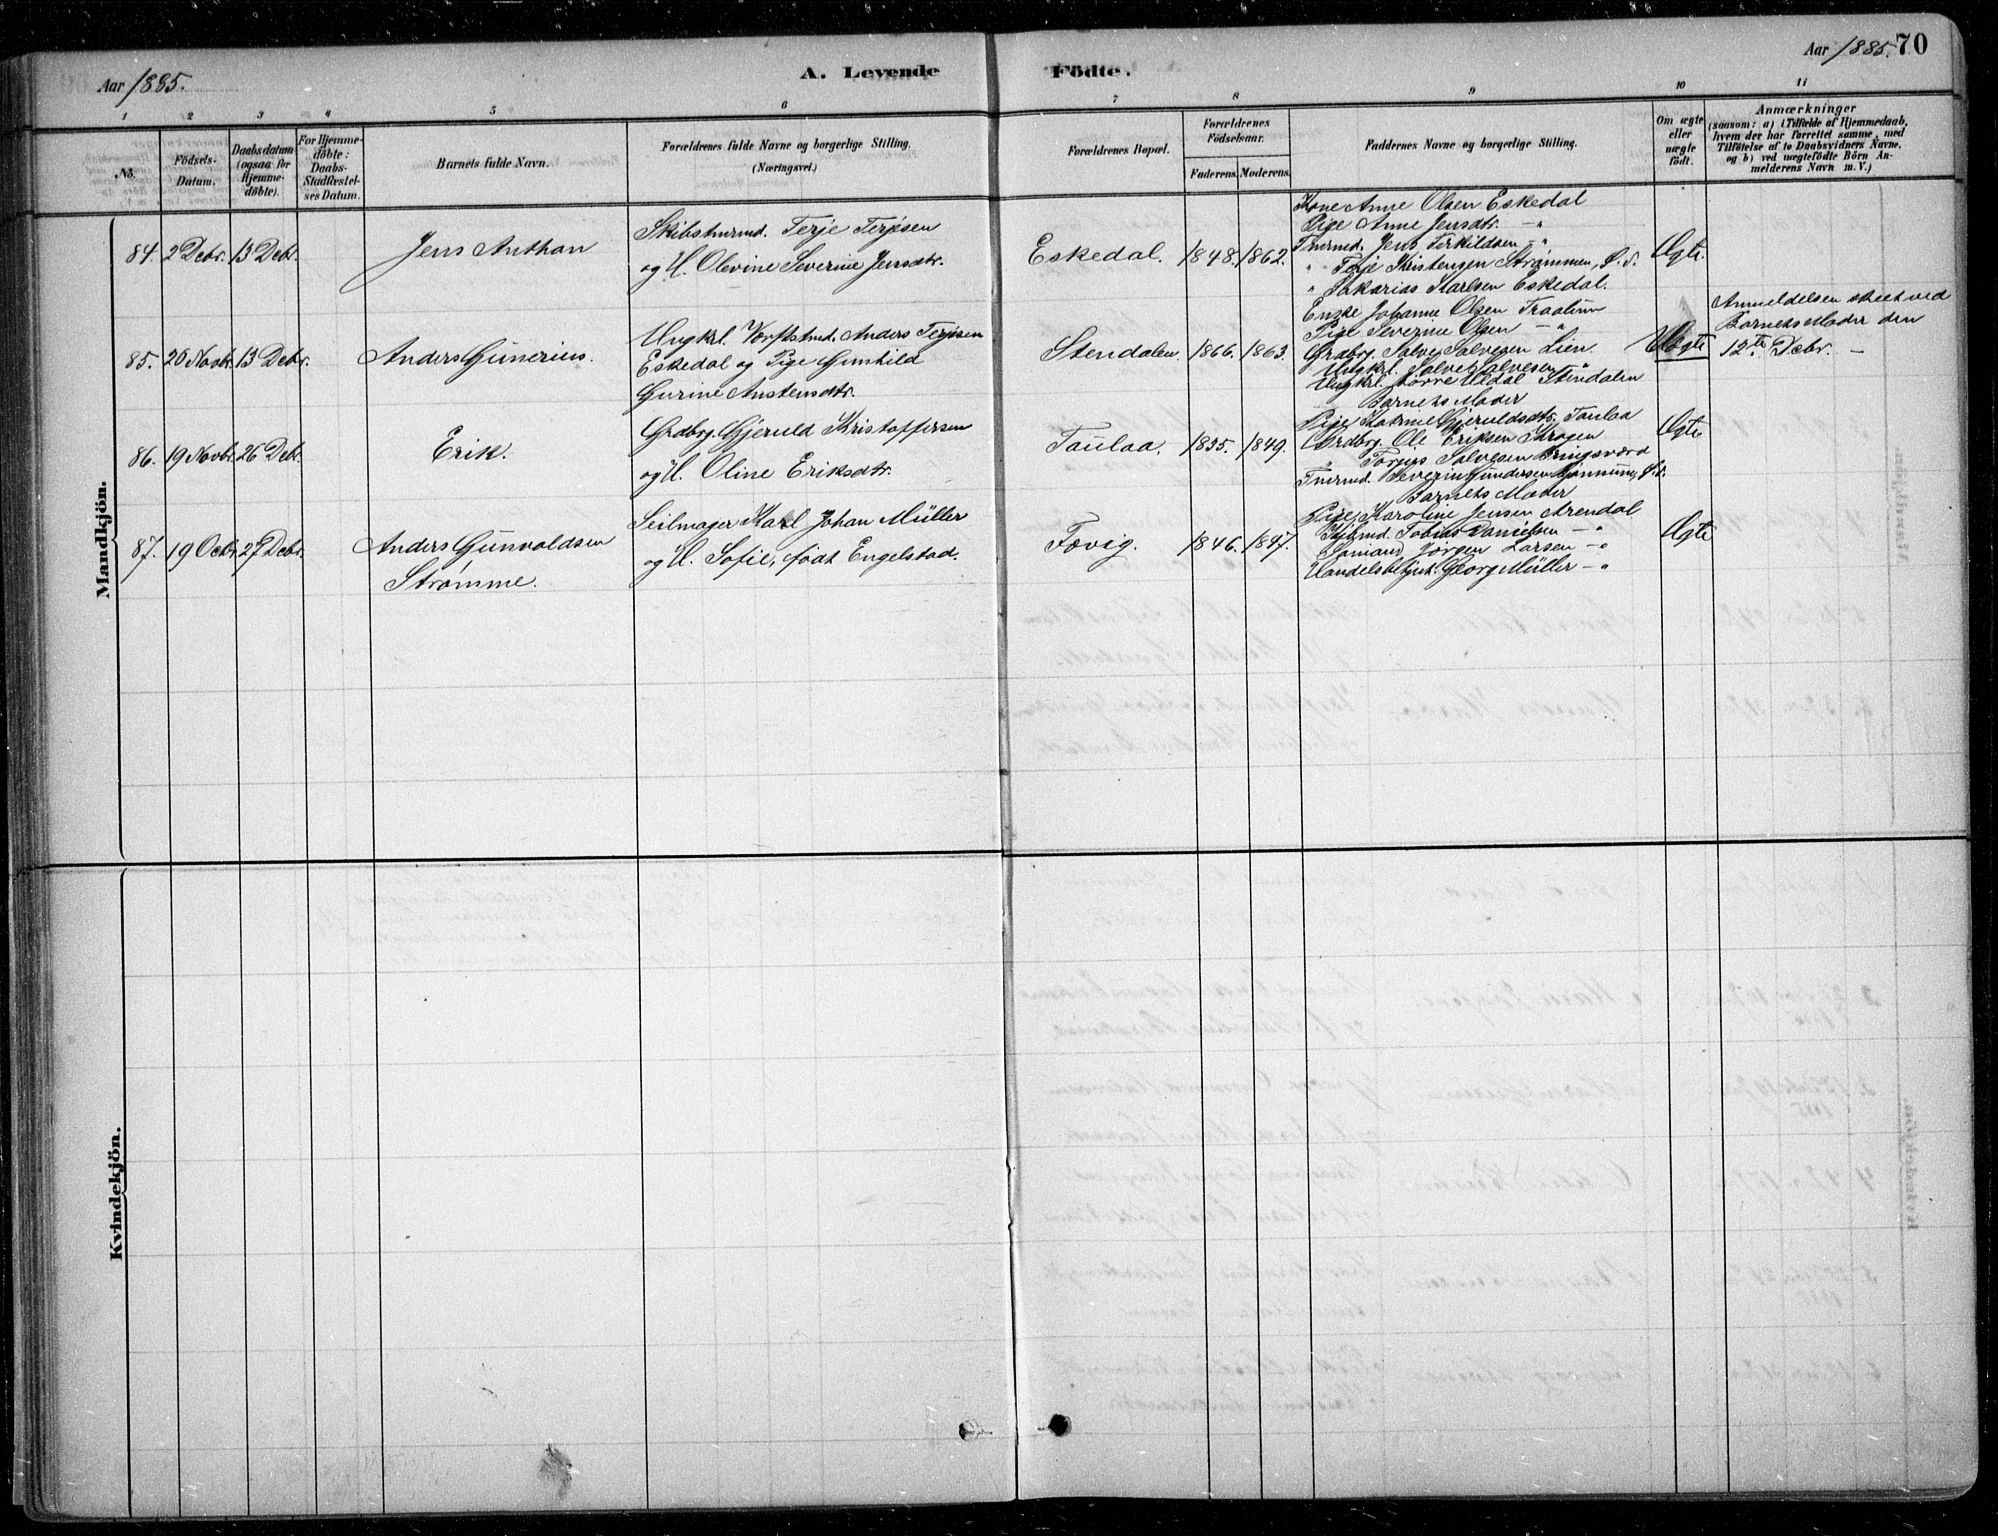 Aar 1885.
A. Levende Födte.
Aar 1885. 70
1 2 3 4 5 6 7 8 9 10 11
No.
Födsels-Datum.
Daabsdatum (ogsaa for Hjemmedöbte).
For Hjemmedöbte: Daabs-Stadfæstelses Datum.
Barnets fulde Navn.
Forældrenes fulde Navne og borgerlige Stilling.
(Næringsvei.)
Forældrenes Bopæl.
Forældrenes Födselsaar.
Faderens. Moderens.
Faddernes Navne og borgerlige Stilling.
Om ægte eller uægte födt.
Anmærkninger
(saasom: a) i Tilfælde af Hjemmedaab, hvem der har forrettet samme, med Tilföielse af to Daabsvidners Navne, og b) ved uægtefödte Börn Anmelderens Navn m. V.)
Mandkjön.
84. 2 Debr. 13 Debr. Jens Anthon
Skibstmrmd. Terje Terjesen
og H. Olevine Severine Jensdtr.
Eskedal. 1848. 1862.
Kone Anne Olsen Eskedal
Pige Anne Jensdtr. -"
Tmrmd. Jens Terkildsen -"
" Terje Kristensen Strømmen,
" Sakarias Karlsen Eskedal.
Ægte.
85. 20 Novbr. 13 Debr. Anders Gunerius.
Ungkrl. Værftstmd. Anders Terjesen
Eskedal og Pige Gunhild
Gurine Anstensdtr.
Stendalen 1866. 1863.
Enke Johanne Olsen
Pige Severine Olsen -"
Grdbrg. Salve Salvesen Lien.
Ungkrl. Salve Salvesen "
Ungkrl. Stendalen
Barnets Moder
Uægte
Anmeldelsen skeet ved
Barnets Moder den
12te Debr. -
86. 19 Novbr. 26 Debr. Erik.
Grdbrg. Gjeruld Kristoffersen
og H. Oline Eriksdtr.
Taulaa. 1835. 1849.
Pige Katrine Gjeruldsdtr. Taulaa
Grdbrg. Ole Eriksen Krogen
" Salvesen Bringsværd
Tmrmd. Severin Gundersen
Barnets Moder
Ægte
87. 19 Octbr. 27 Debr. Anders Gunvaldsen
Strømme.
Seilmager Karl Johan Müller
og H. Sofie, født Engelstad.
Fævig. 1846. 1847.
Pige Karoline Jensen Arendal
Tobias Danielsen -"
Sømand Jørgen Larsen -"
Handelsbetjnt. Georg Müller -"
Ægte
Kvindekjön.